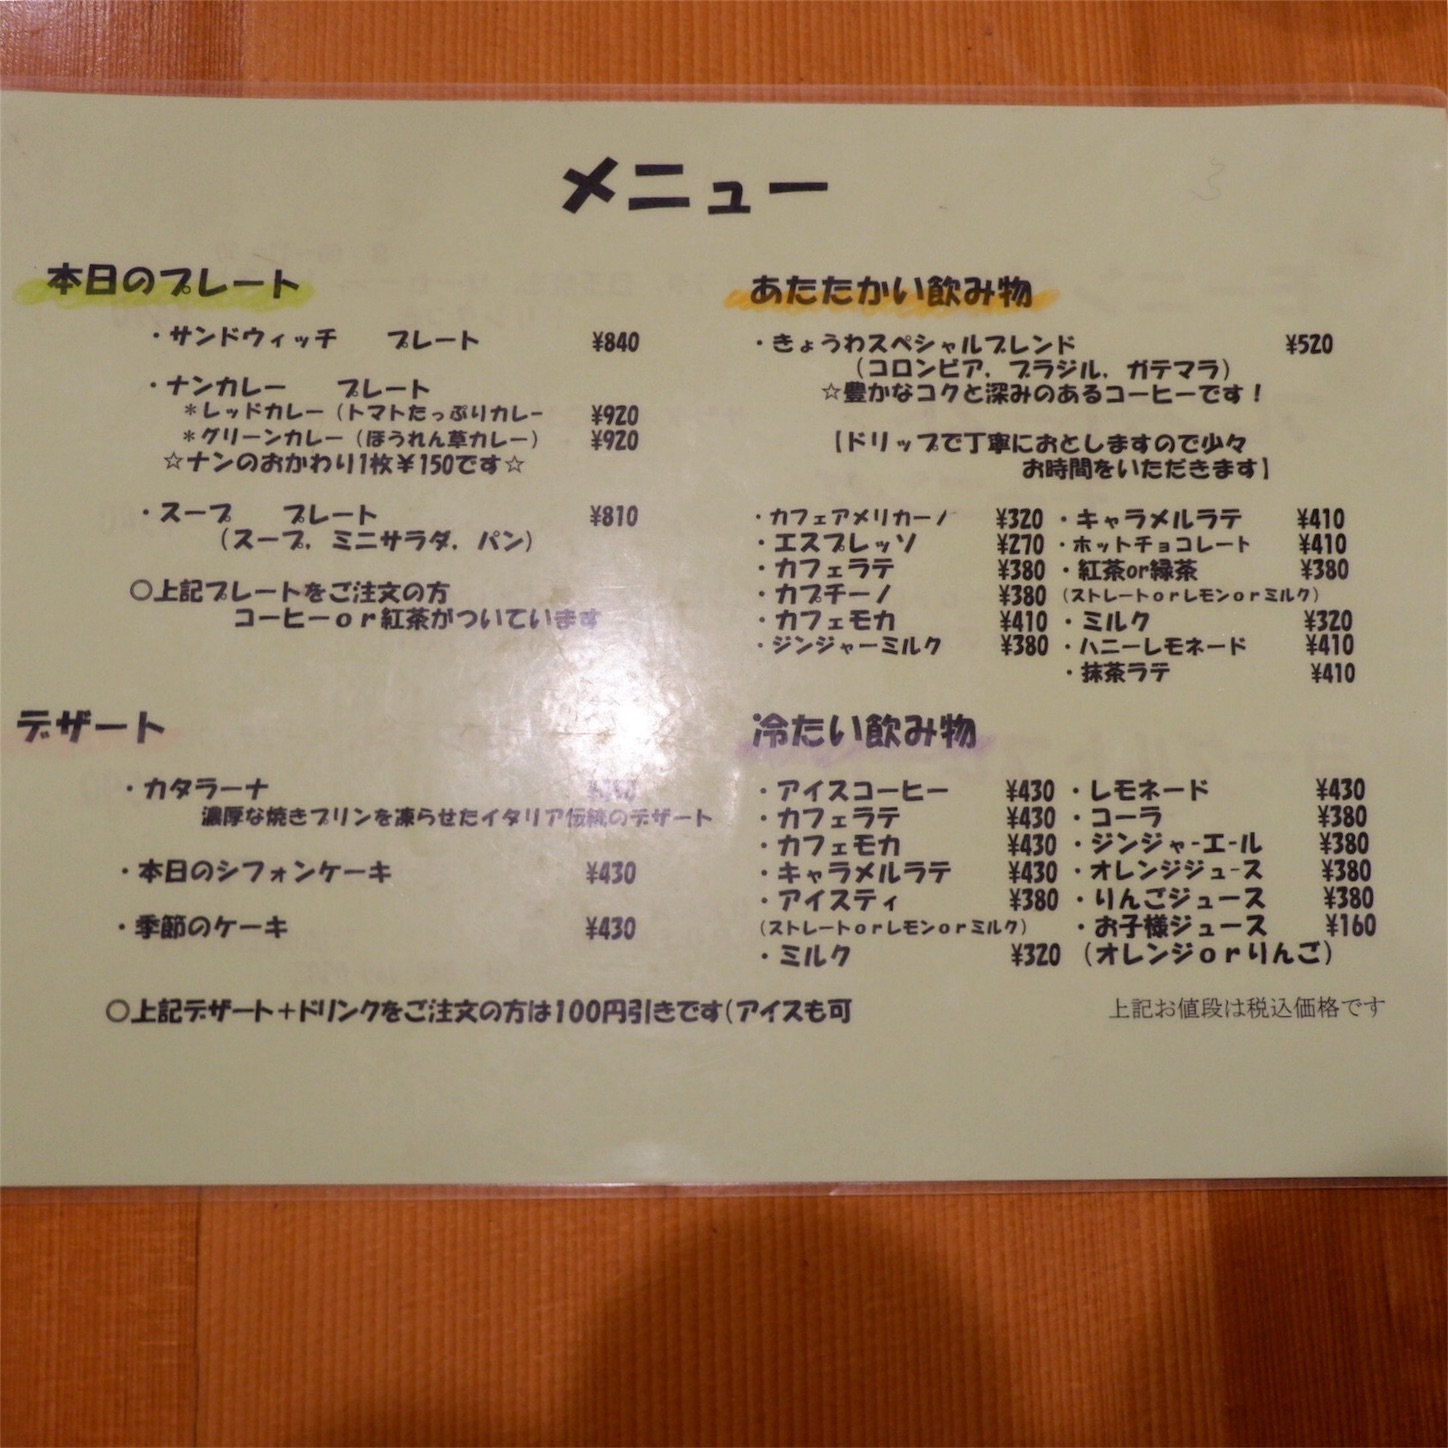 メニュー
本日のプレート
・サンドウィッチ　プレート　¥840
・ナンカレー　プレート
＊レッドカレー（トマトたっぷりカレー　¥920
＊グリーンカレー（ほうれん草カレー）　¥920
☆ナンのおかわり1枚￥150です☆
・スープ　プレート　¥810
（スープ，ミニサラダ，パン）
○上記プレートをご注文の方
コーヒーｏｒ紅茶がついています
デザート
・カタラーナ
濃厚な焼きプリンを凍らせたイタリア伝統のデザート
・本日のシフォンケーキ　¥430
・季節のケーキ　¥430
○上記デザート＋ドリンクをご注文の方は100円引きです（アイスも可
あたたかい飲み物
・きょうわスペシャルブレンド　¥520
（コロンビア，ブラジル，ガテマラ）
☆豊かなコクと深みのあるコーヒーです！
【ドリップで丁寧におとしますので少々
お時間をいただきます】
・カフェアメリカーノ　¥320
・エスプレッソ　¥270
・カフェラテ　¥380
・カプチーノ　¥380
・カフェモカ　¥410
・ジンジャーミルク　¥380
・キャラメルラテ　¥410
・ホットチョコレート　¥410
・紅茶or緑茶　¥380
（ストレートｏｒレモンｏｒミルク）
・ミルク　¥320
・ハニーレモネード　¥410
・抹茶ラテ　¥410
冷たい飲み物
・アイスコーヒー　¥430
・カフェラテ　¥430
・カフェモカ　¥430
・キャラメルラテ　¥430
・アイスティ　¥380
（ストレートｏｒレモンｏｒミルク）
・ミルク　¥320
・レモネード　¥430
・コーラ　¥380
・ジンジャ-エ-ル　¥380
・オレンジジュ-ス　¥380
・りんごジュース　¥380
・お子様ジュース　¥160
（オレンジｏｒりんご）
上記お値段は税込価格です